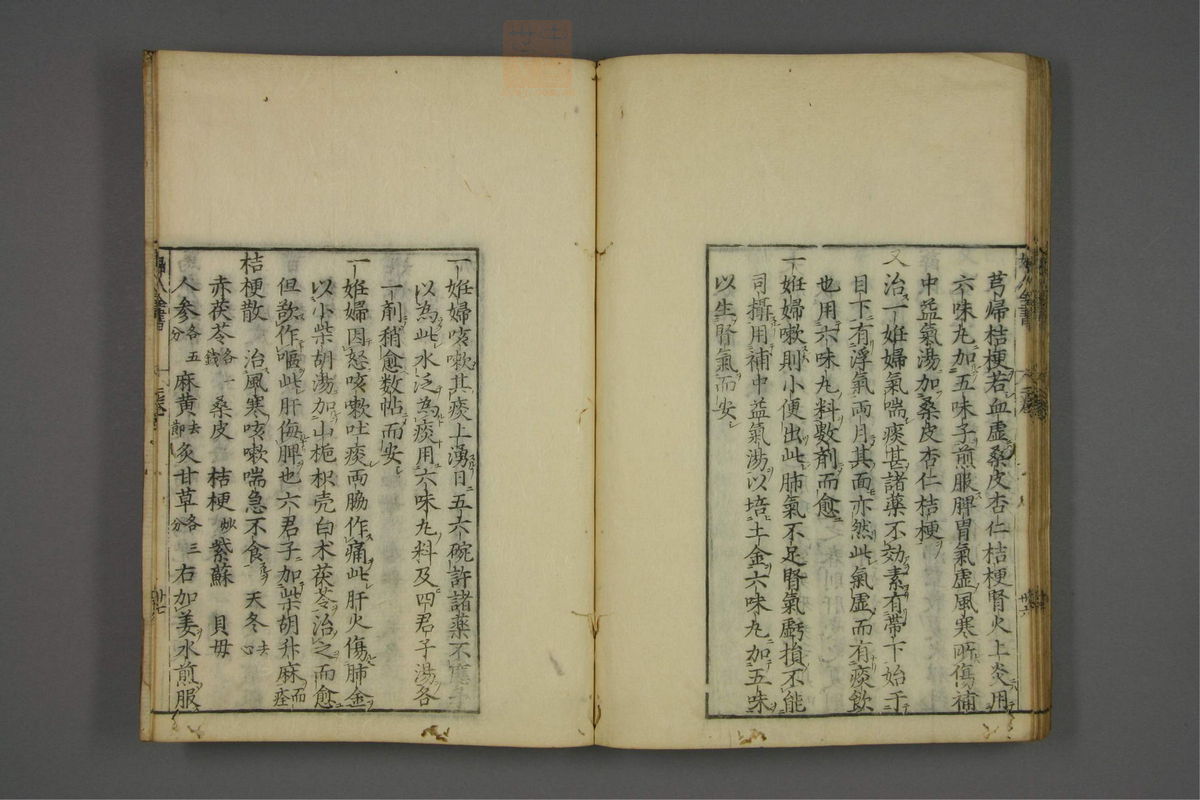 芎歸桔梗若血虛桑皮杏仁桔梗腎火上炎用
六味丸加五味子煎服脾胃氣虛風寒所傷補
中益氣湯加桑皮杏仁桔梗
又治一妊婦氣喘痰甚諸藥不効素有帶下始于
目下有浮氣兩月其面亦然此氣虛而有痰飲
也用六味丸料數劑而愈
一妊婦嗽則小便出此肺氣不足腎氣虧損不能
司攝用補中益氣湯以培土金六味丸加五味
以生腎氣而安
一妊婦咳嗽其痰上湧日五六碗許諸藥不應予
以為此水泛為痰用六味丸料及四君子湯各
一劑稍愈数帖而安
一妊婦因怒咳嗽吐痰兩脇作痛此肝火傷肺金
以小柴胡湯加山梔枳壳白术茯苓治之而愈
但欬作嘔此肝侮脾也六君子加柴胡升麻而痊
桔梗散 治風寒咳嗽喘急不食 天冬去心
赤茯苓各一錢 桑皮 桔梗炒 紫蘇 貝母
人參各五分 麻黄去節 炙甘草各三分 右加姜水煎服